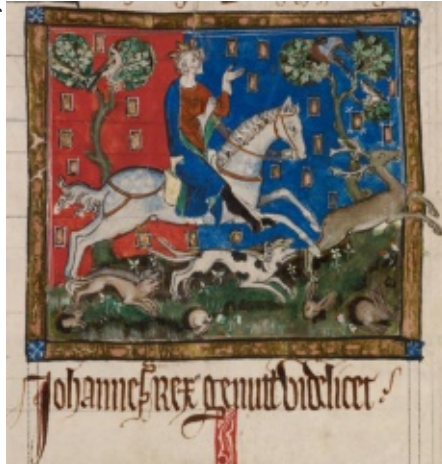 Johannes REX genuit videlicet :